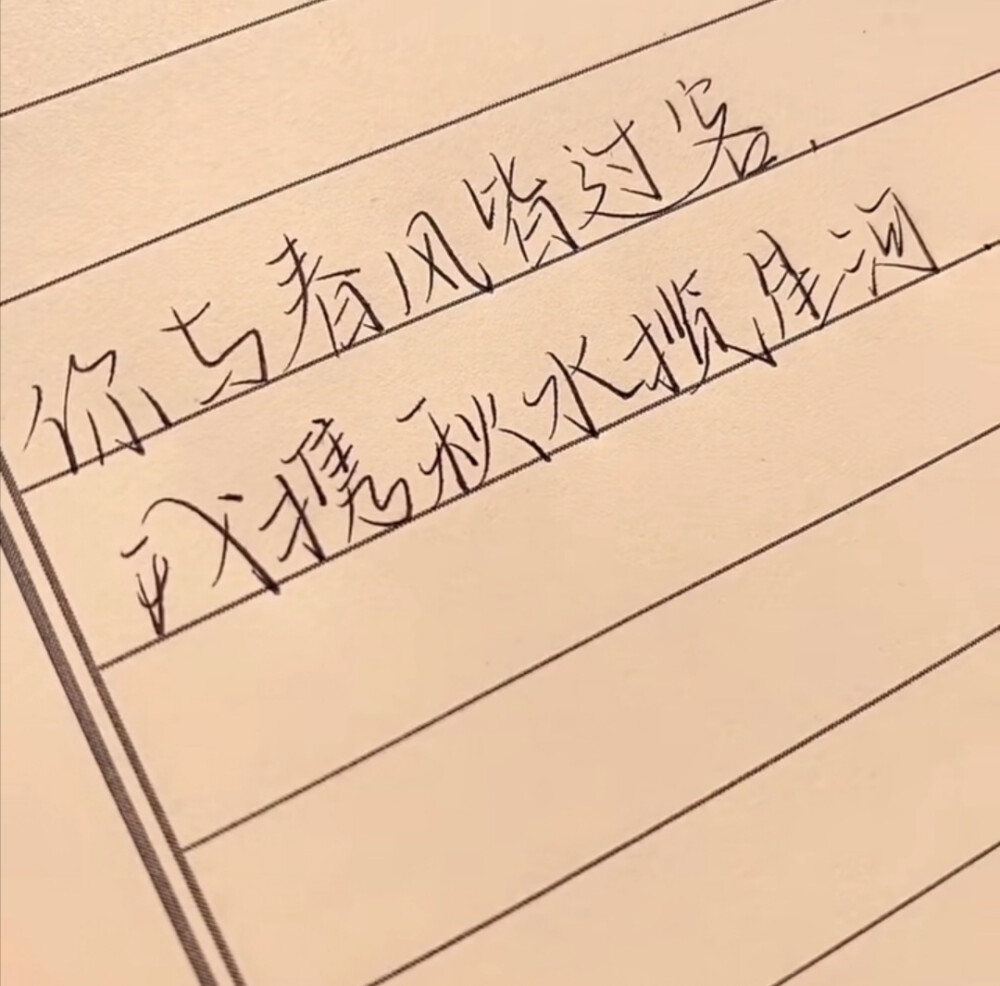 你与春风皆过客.
我携秋水揽星河.